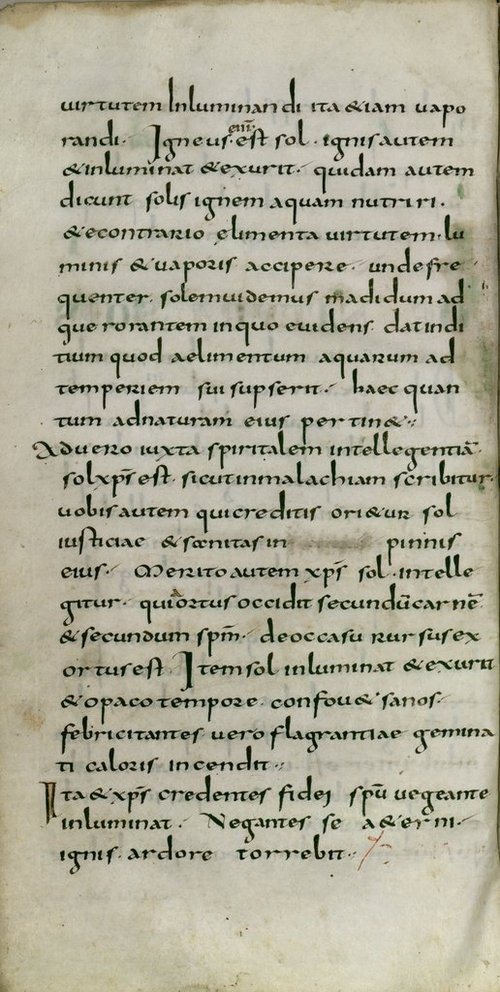 uirtutem Inluminandi ita &iam uapo
randi. Igneus enī est sol. ignis autem
& inluminat & exurit. quidam autem
dicunt solis ignem aquam nutriri.
& econtrario elimenta uirtutem. lu
minis & uaporis accipere. unde fre
quenter. solem uidemus madidum ad
que rorantem in quo euidens dat indi
tium quod aelimentum aquarum ad
temperiem sui supserit. haec quan
tum ad naturam eius pertin&.
Aduero iuxta spiritalem intellegentiā.
sol xp̄s est. sicut in malachiam scribitur.
uobis autem qui creditis ori&ur sol
iusticiae & sanitas in pinnis
eius. Merito autem xp̄s sol. intelle
gitur. quia ortus occidit secundū carnē
& secundum sp̄m. de occasu rursus ex
ortus est. Item sol inluminat & exurit
& opaco tempore. confou& sanos.
febricitantes uero flagrantiae gemina
ti caloris incendit.
Ita & xp̄s credentes fidei sp̄u uegeante
inluminat. Negantes se a&erni.
ignis. ardore torrebit.